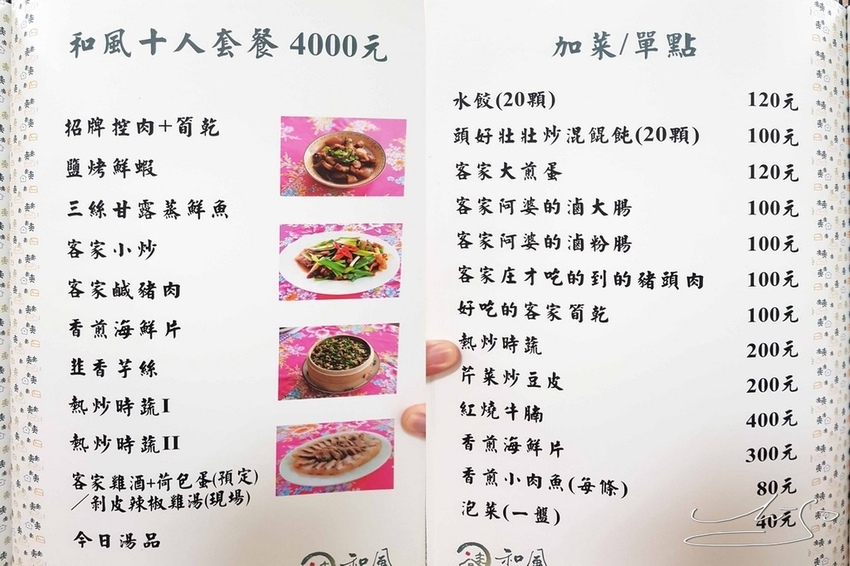 和風十人套餐 4000元
招牌控肉+筍乾
鹽烤鮮蝦
三絲甘露蒸鮮魚
客家小炒
客家鹹豬肉
香煎海鮮片
韭香芋絲
熱炒時蔬I
熱炒時蔬II
客家雞酒+荷包蛋(預定)
／剝皮辣椒雞湯(現場)
今日湯品
和風
加菜/單點
水餃(20顆) 120元
頭好壯壯炒混餛飩(20顆) 100元
客家大煎蛋 120元
客家阿婆的滷大腸 100元
客家阿婆的滷粉腸 100元
客家庄才吃的到的豬頭肉 100元
好吃的客家筍乾 100元
熱炒時蔬 200元
芹菜炒豆皮 200元
紅燒牛腩 400元
香煎海鮮片 300元
香煎小肉魚(每條) 80元
泡菜(一盤) 40元
和風